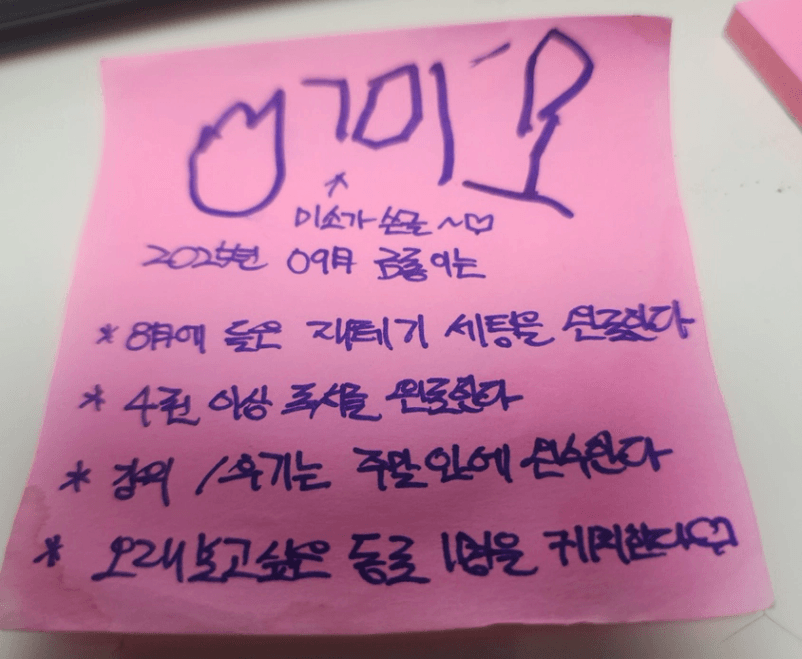 미소가 쓴글 ~♡
2025년 09월 금통이는
* 8월에 들은 재테기 세팅을 완료한다
* 4권 이상 독서를 완료한다
* 강의 / 후기는 주말 안에 완수한다
* 오래보고싶은 동료 1명을 캐피한다♡